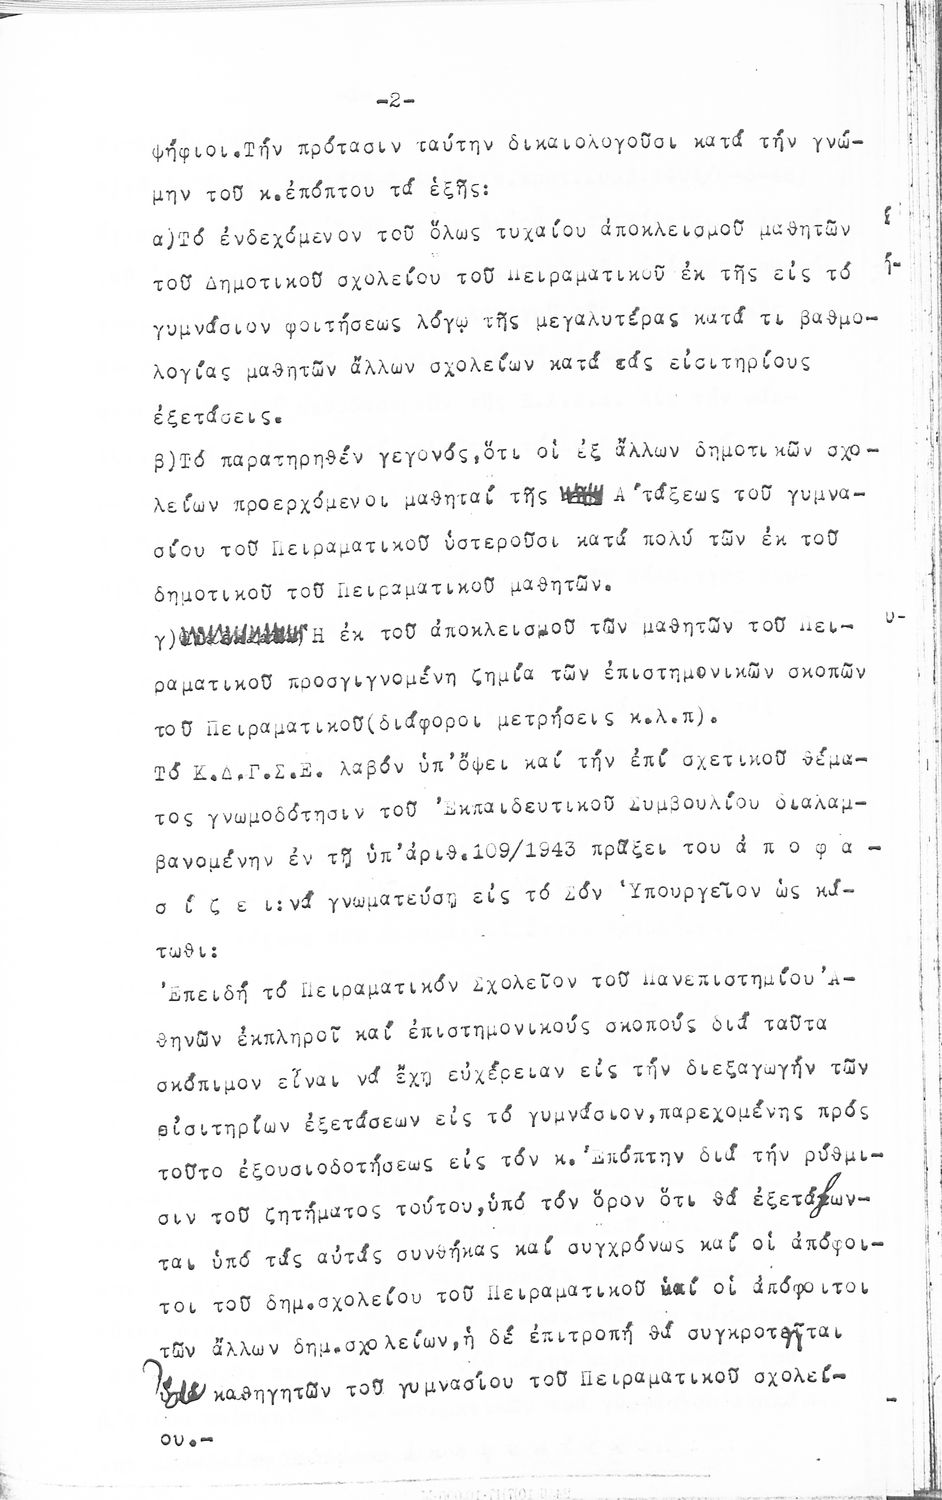 -2-
ψήφιοι.Τήν πρότασιν ταύτην δικαιολογοῦσι κατά τήν γνώ-
μην τοῦ κ.ἐπόπτου τά ἑξῆς:
α)Τό ἐνδεχόμενον τοῦ ὅλως τυχαίου ἀποκλεισμοῦ μαθητῶν
τοῦ Δημοτικοῦ σχολείου τοῦ Πειραματικοῦ ἐκ τῆς εἰς τό
γυμνάσιον φοιτήσεως λόγῳ τῆς μεγαλυτέρας κατά τι βαθμο-
λογίας μαθητῶν ἄλλων σχολείων κατά τάς εἰσιτηρίους
ἐξετάσεις.
β)Τό παρατηρηθέν γεγονός,ὅτι οἱ ἐξ ἄλλων δημοτικῶν σχο-
λείων προερχόμενοι μαθηταί τῆς Α'τάξεως τοῦ γυμνα-
σίου τοῦ Πειραματικοῦ ὑστεροῦσι κατά πολύ τῶν ἐκ τοῦ
δημοτικοῦ τοῦ Πειραματικοῦ μαθητῶν.
γ)Ἡ ἐκ τοῦ ἀποκλεισμοῦ τῶν μαθητῶν τοῦ Πει-
ραματικοῦ προσγιγνομένη ζημία τῶν ἐπιστημονικῶν σκοπῶν
τοῦ Πειραματικοῦ(διάφοροι μετρήσεις κ.λ.π).
Τό Κ.Δ.Γ.Σ.Ε. λαβόν ὑπ'ὄψει καί τήν ἐπί σχετικοῦ θέμα-
τος γνωμοδότησιν τοῦ Ἐκπαιδευτικοῦ Συμβουλίου διαλαμ-
βανομένην ἐν τῇ ὑπ'ἀριθ.109/1943 πράξει του ἀ π ο φ α -
σ ί ζ ε ι:νά γνωματεύσῃ εἰς τό Σόν Ὑπουργεῖον ὡς κά-
τωθι:
Ἐπειδή τό Πειραματικόν Σχολεῖον τοῦ Πανεπιστημίου Ἀ-
θηνῶν ἐκπληροῖ καί ἐπιστημονικούς σκοπούς διά ταῦτα
σκόπιμον εἶναι νά ἔχῃ εὐχέρειαν εἰς τήν διεξαγωγήν τῶν
εἰσιτηρίων ἐξετάσεων εἰς τό γυμνάσιον,παρεχομένης πρός
τοῦτο ἐξουσιοδοτήσεως εἰς τόν κ. Ἐπόπτην διά τήν ρύθμι-
σιν τοῦ ζητήματος τούτου,ὑπό τόν ὅρον ὅτι θά ἐξετάζων-
ται ὑπό τάς αὐτάς συνθήκας καί συγχρόνως καί οἱ ἀπόφοι-
τοι τοῦ δημ.σχολείου τοῦ Πειραματικοῦ καί οἱ ἀπόφοιτοι
τῶν ἄλλων δημ.σχολείων,ἡ δέ ἐπιτροπή θά συγκροτῆται
καθηγητῶν τοῦ γυμνασίου τοῦ Πειραματικοῦ σχολεί-
ου.-